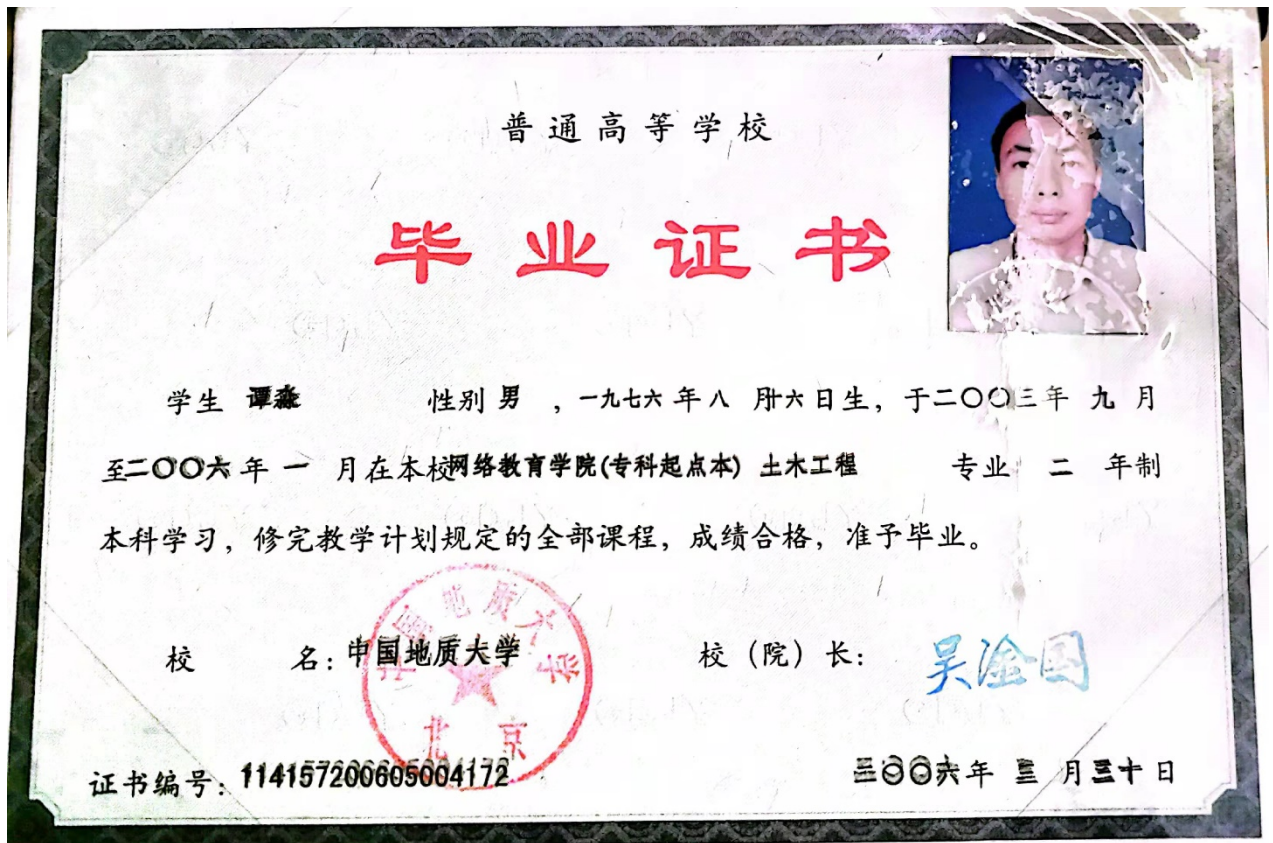 普通高等学校
毕业证书
学生 谭淼 性别 男 , 一九七六 年 八 月廿六日生, 于二〇〇三年 九 月
至二〇〇六年 一 月在本校网络教育学院(专科起点本) 土木工程 专业 二 年制
本科学习, 修完教学计划规定的全部课程, 成绩合格, 准予毕业。
校 名: 中国地质大学 校(院)长: 吴淦国
中国地质大学
北京
证书编号: 114157200605004172 二〇〇六年 三 月三十日